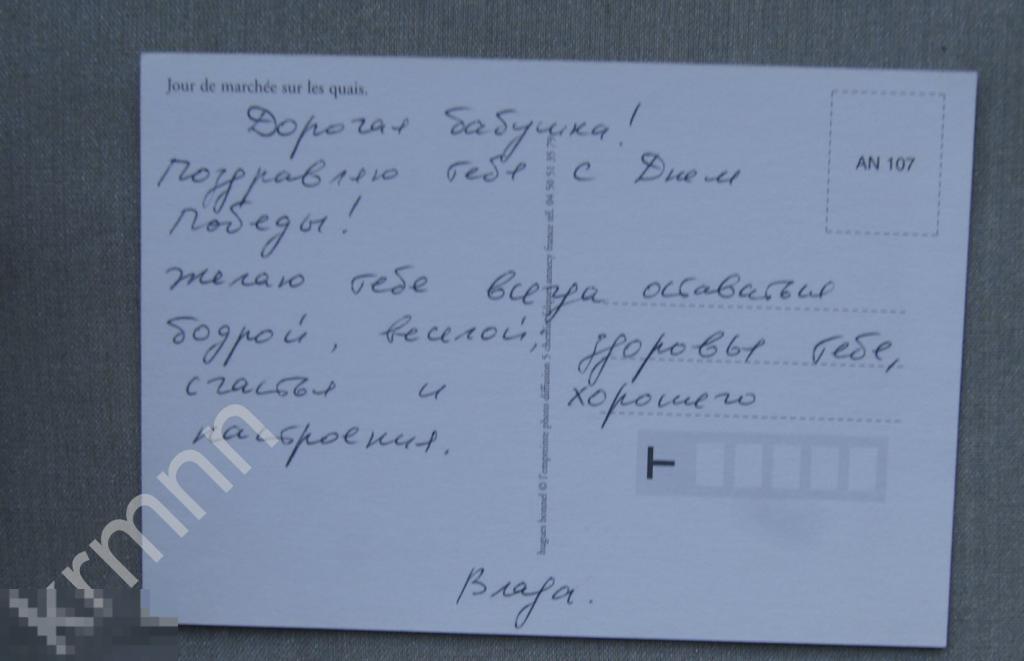 Jour de marchée sur les quais.
AN 107
Дорогая бабушка!
Поздравляю тебя с Днем
Победы!
Желаю тебе всегда оставаться
бодрой, веселой, здоровья тебе,
счастья и хорошего
настроения.
Влада.
hugues bonnel © l'empreinte photo diffusion 5 annecy france tél. 04 50 51 35 79
T
krmnn